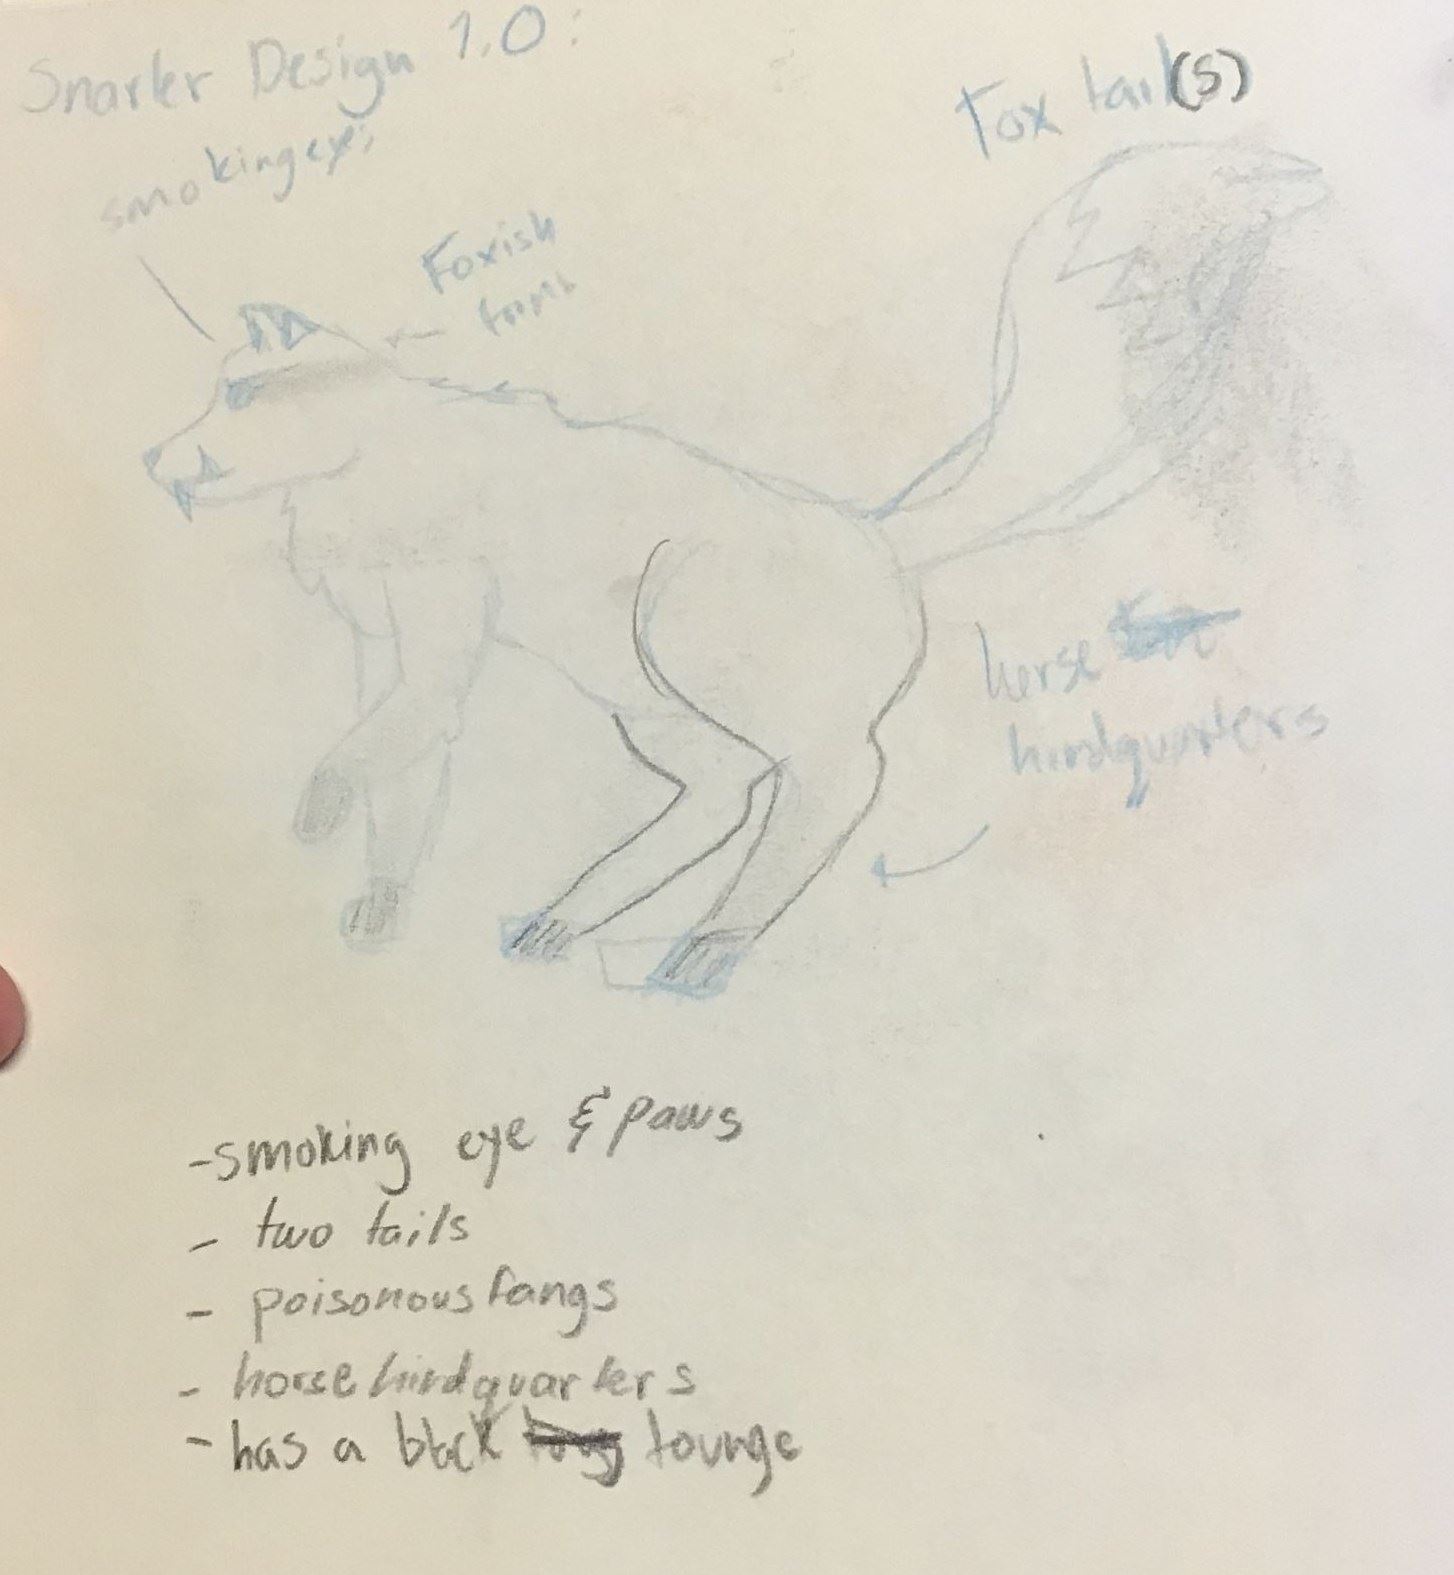 Snarler Design 1.0:
smoking eyes
Fox tail(s)
Foxish
horse
hindquarters
-smoking eye & paws
- two tails
- poisonous fangs
- horse hindquarters
- has a black tounge